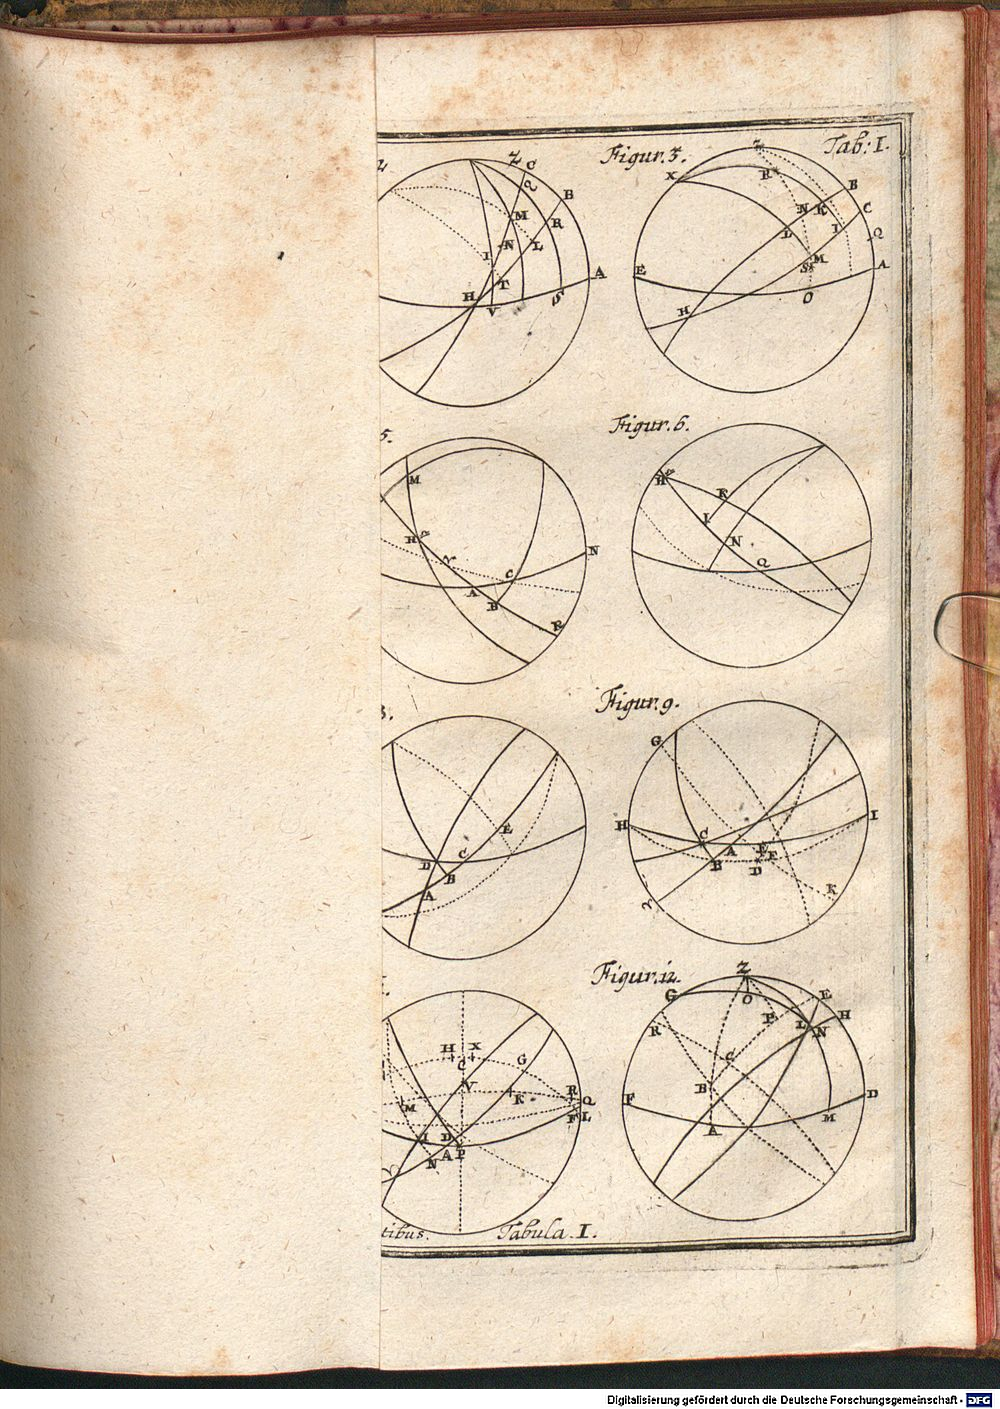 Figur. 3. Tab: I.
Z C
B
M R
N L
I
A
T
H
V S
Z
X R B
N K C
L I Q
M
E S A
O
H
5. Figur. 6.
M
H N
C
A
B
R
H
K
I
N
Q
8. Figur. 9.
E
C
D
B
A
G
H I
C
A E F
B
D K
Figur. 12.
H X
C G
V
M K R
Q
F L
I D
A P
N
Z
G O E
R P L H
N
C
B
F D
A M
tibus. Tabula. I.
Digitalisierung gefördert durch die Deutsche Forschungsgemeinschaft - DFG